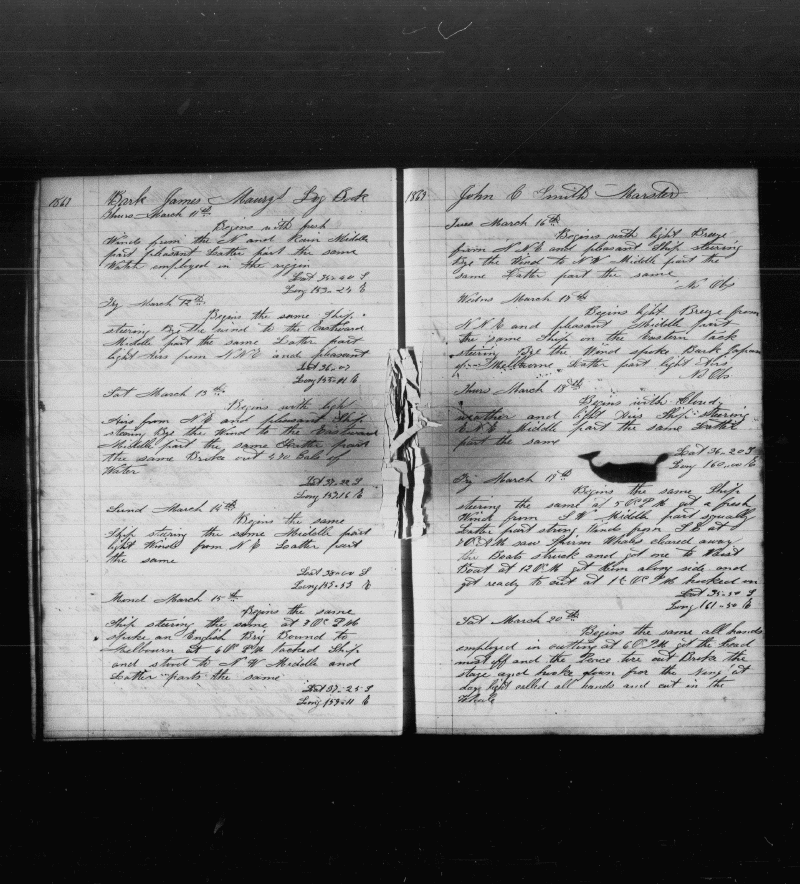 1869 Bark James Maury's Log Book
Thurs March 11th
Begins with fresh
Winds from the N and Rain Middle
part pleasant Latter part the same
Watch employed in the riggin
Lat 35-40 S
Long 153-24 E
Fry March 12th
Begins the same Ship
steering By the Wind to the Eastward
Middle part the same Latter part
light Airs from NNE and pleasant
Lat 36-07
Long 155-41 E
Sat March 13th
Begins with light
Airs from N E and pleasant Ship
steering By the Wind to the Eastward
Middle part the same Latter part
the same Broke out Bbls of
Water
Lat 37-22 S
Long 153-16 E
Sund March 14th
Begins the same
Ship steering the same Middle part
light Winds from N E Latter part
the same
Lat 38-00 S
Long 153-53 E
Mond March 15th
Begins the same
Ship steering the same at 3 Oc PM
spoke an English Brig Bound to
Melbourn at 6 Oc PM tacked Ship
and stood to N W Middle and
Latter parts the same
Lat 37-25 S
Long 153-11 E
1869 John C Smith Marster
Tues March 16th
Begins with light Breeze
from N N E and pleasant Ship steering
Bye the Wind to N W Middle part the
same Latter part the same
No Obs
Wedns March 17th
Begins light Breeze from
N N E and pleasant Middle part
the same Ship on the Eastern tack
steering Bye the Wind spoke Bark Japan
of Melbourne Latter part light Airs
No Obs
Thurs March 18th
Begins with Cloudy
weather and light Airs Ship steering
E N E Middle part the same Latter
part the same
Lat 36-20 S
Long 160-00 E
Fry March 19th
Begins the same Ship
steering the same at 5 Oc PM got a fresh
Wind from S W Middle part squally
Latter part strong Winds from S E at
Oc AM saw Sperm Whales cleared away
the Boats struck and got one to Waist
Boat at 12 Oc M got them along side and
got ready to cut at 1 Oc PM hooked on
Lat 35-50 S
Long 161-50 E
Sat March 20th
Begins the same all hands
employed in cutting at 6 Oc PM got the head
most off and the Piece tore out Broke the
stage and broke down for the Ning at
day light called all hands and cut in the
Whale